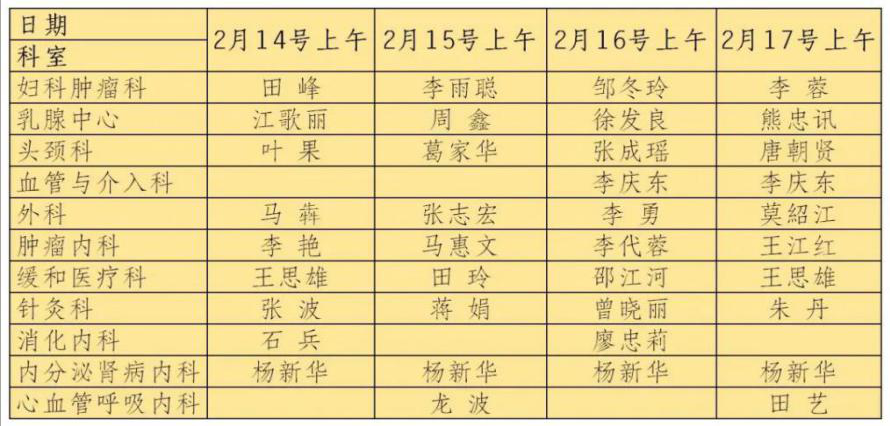 日期
科室 2月14号上午 2月15号上午 2月16号上午 2月17号上午
妇科肿瘤科 田 峰 李雨聪 邹冬玲 李 蓉
乳腺中心 江歌丽 周 鑫 徐发良 熊忠讯
头颈科 叶 果 葛家华 张成瑶 唐朝贤
血管与介入科 李庆东 李庆东
外科 马 犇 张志宏 李 勇 莫紹江
肿瘤内科 李 艳 马惠文 李代蓉 王江红
缓和医疗科 王思雄 田 玲 邵江河 王思雄
针灸科 张 波 蒋 娟 曾晓丽 朱 丹
消化内科 石 兵 廖忠莉
内分泌肾病内科 杨新华 杨新华 杨新华 杨新华
心血管呼吸内科 龙 波 田 艺